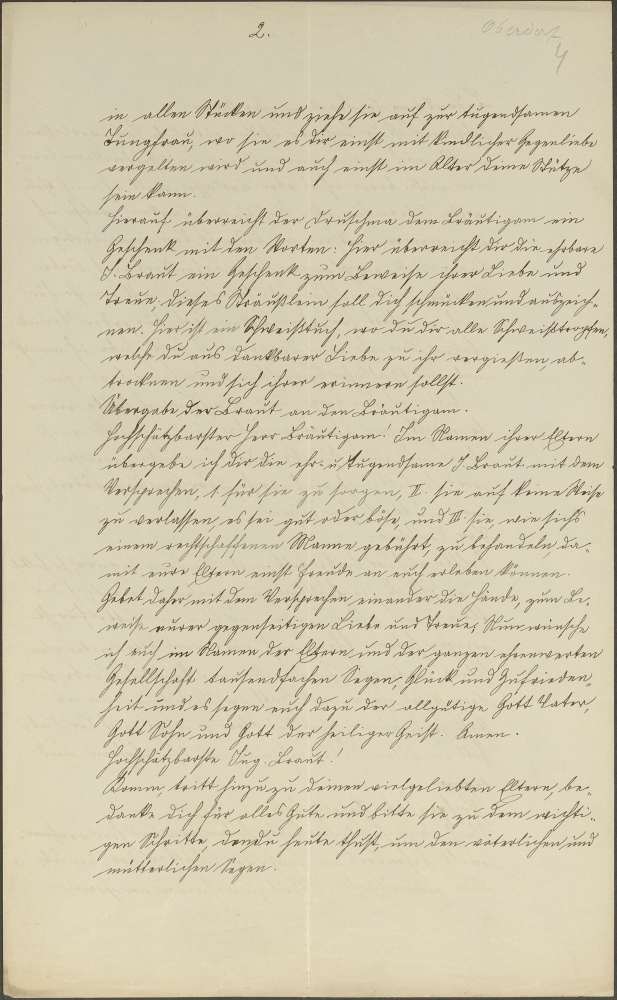 2.
Oberdorf
4
in allen Stücken und ziehe sie auf zur tugendsamen
Jungfrau, wo sie es dir einst mit kindlicher Gegenliebe
vergelten wird und auch einst im Alter deine Stütze
sein kann.
Hierauf überreicht der Druschma dem Bräutigam ein
Geschenk mit den Worten: Hier überreicht dir die ehrbare
J. Braut ein Geschenk zum Beweise ihrer Liebe und
Treue, dieses Sträußlein soll dich schmücken und auszeich-
nen. Hier ist ein Schweißtuch, wo du dir alle Schweißtropfen,
welche du aus dankbarer Liebe zu ihr vergießen, ab-
trocknen und sich ihrer erinnern sollst.
Übergabe der Braut an den Bräutigam.
Hochschätzbarster Herr Bräutigam! Im Namen ihrer Eltern
übergebe ich dir die ehr- u. tugendsame J. Braut mit dem
Versprechen, I. für sie zu sorgen, II. sie auf keine Weise
zu verlassen, es sei gut oder böse, und III. sie, wie sichs
einem rechtschaffenen Manne gebührt, zu behandeln da-
mit eure Eltern einst Freude an euch erleben können.
Gebet daher mit dem Versprechen einander die Hände, zum Be-
weise eurer gegenseitigen Liebe und Treue; Nun wünsche
ich euch im Namen der Eltern und der ganzen ehrenwerten
Gesellschaft tausendfachen Segen, Glück und Zufrieden-
heit und es segne euch dazu der allgütige Gott Vater,
Gott Sohn und Gott der heiliger Geist. Amen.
Hochschätzbarste Jug. Braut!
Komm, tritt hinzu zu deinen vielgeliebten Eltern, be-
danke dich für alles Gute und bitte sie zu dem wichti-
gen Schritte, den du heute thust, um den väterlichen und
mütterlichen Segen.